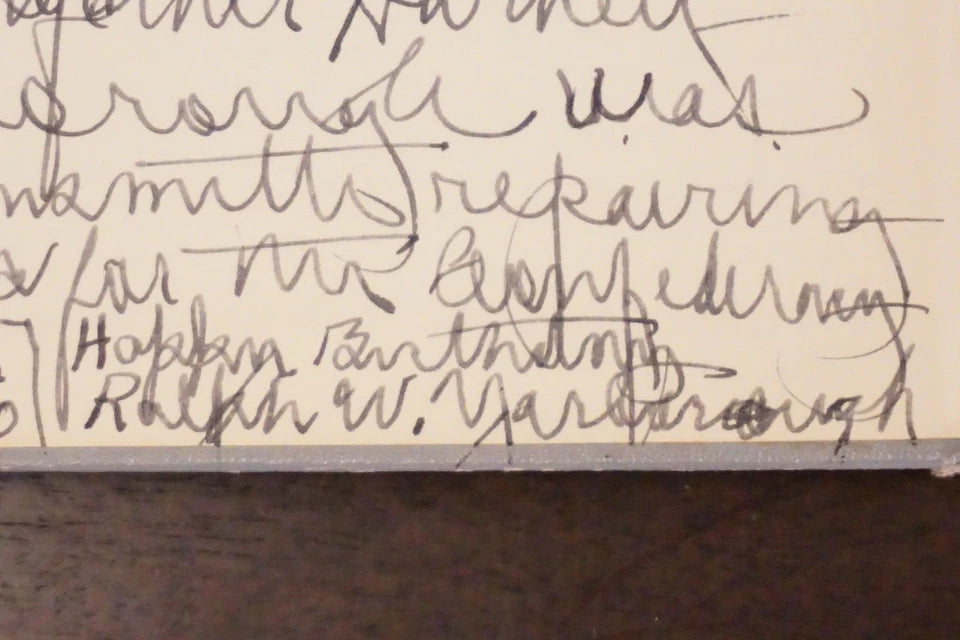 Harvey
was
repairing
for the Confederacy
Happy Birthday
Ralph W. Yarborough